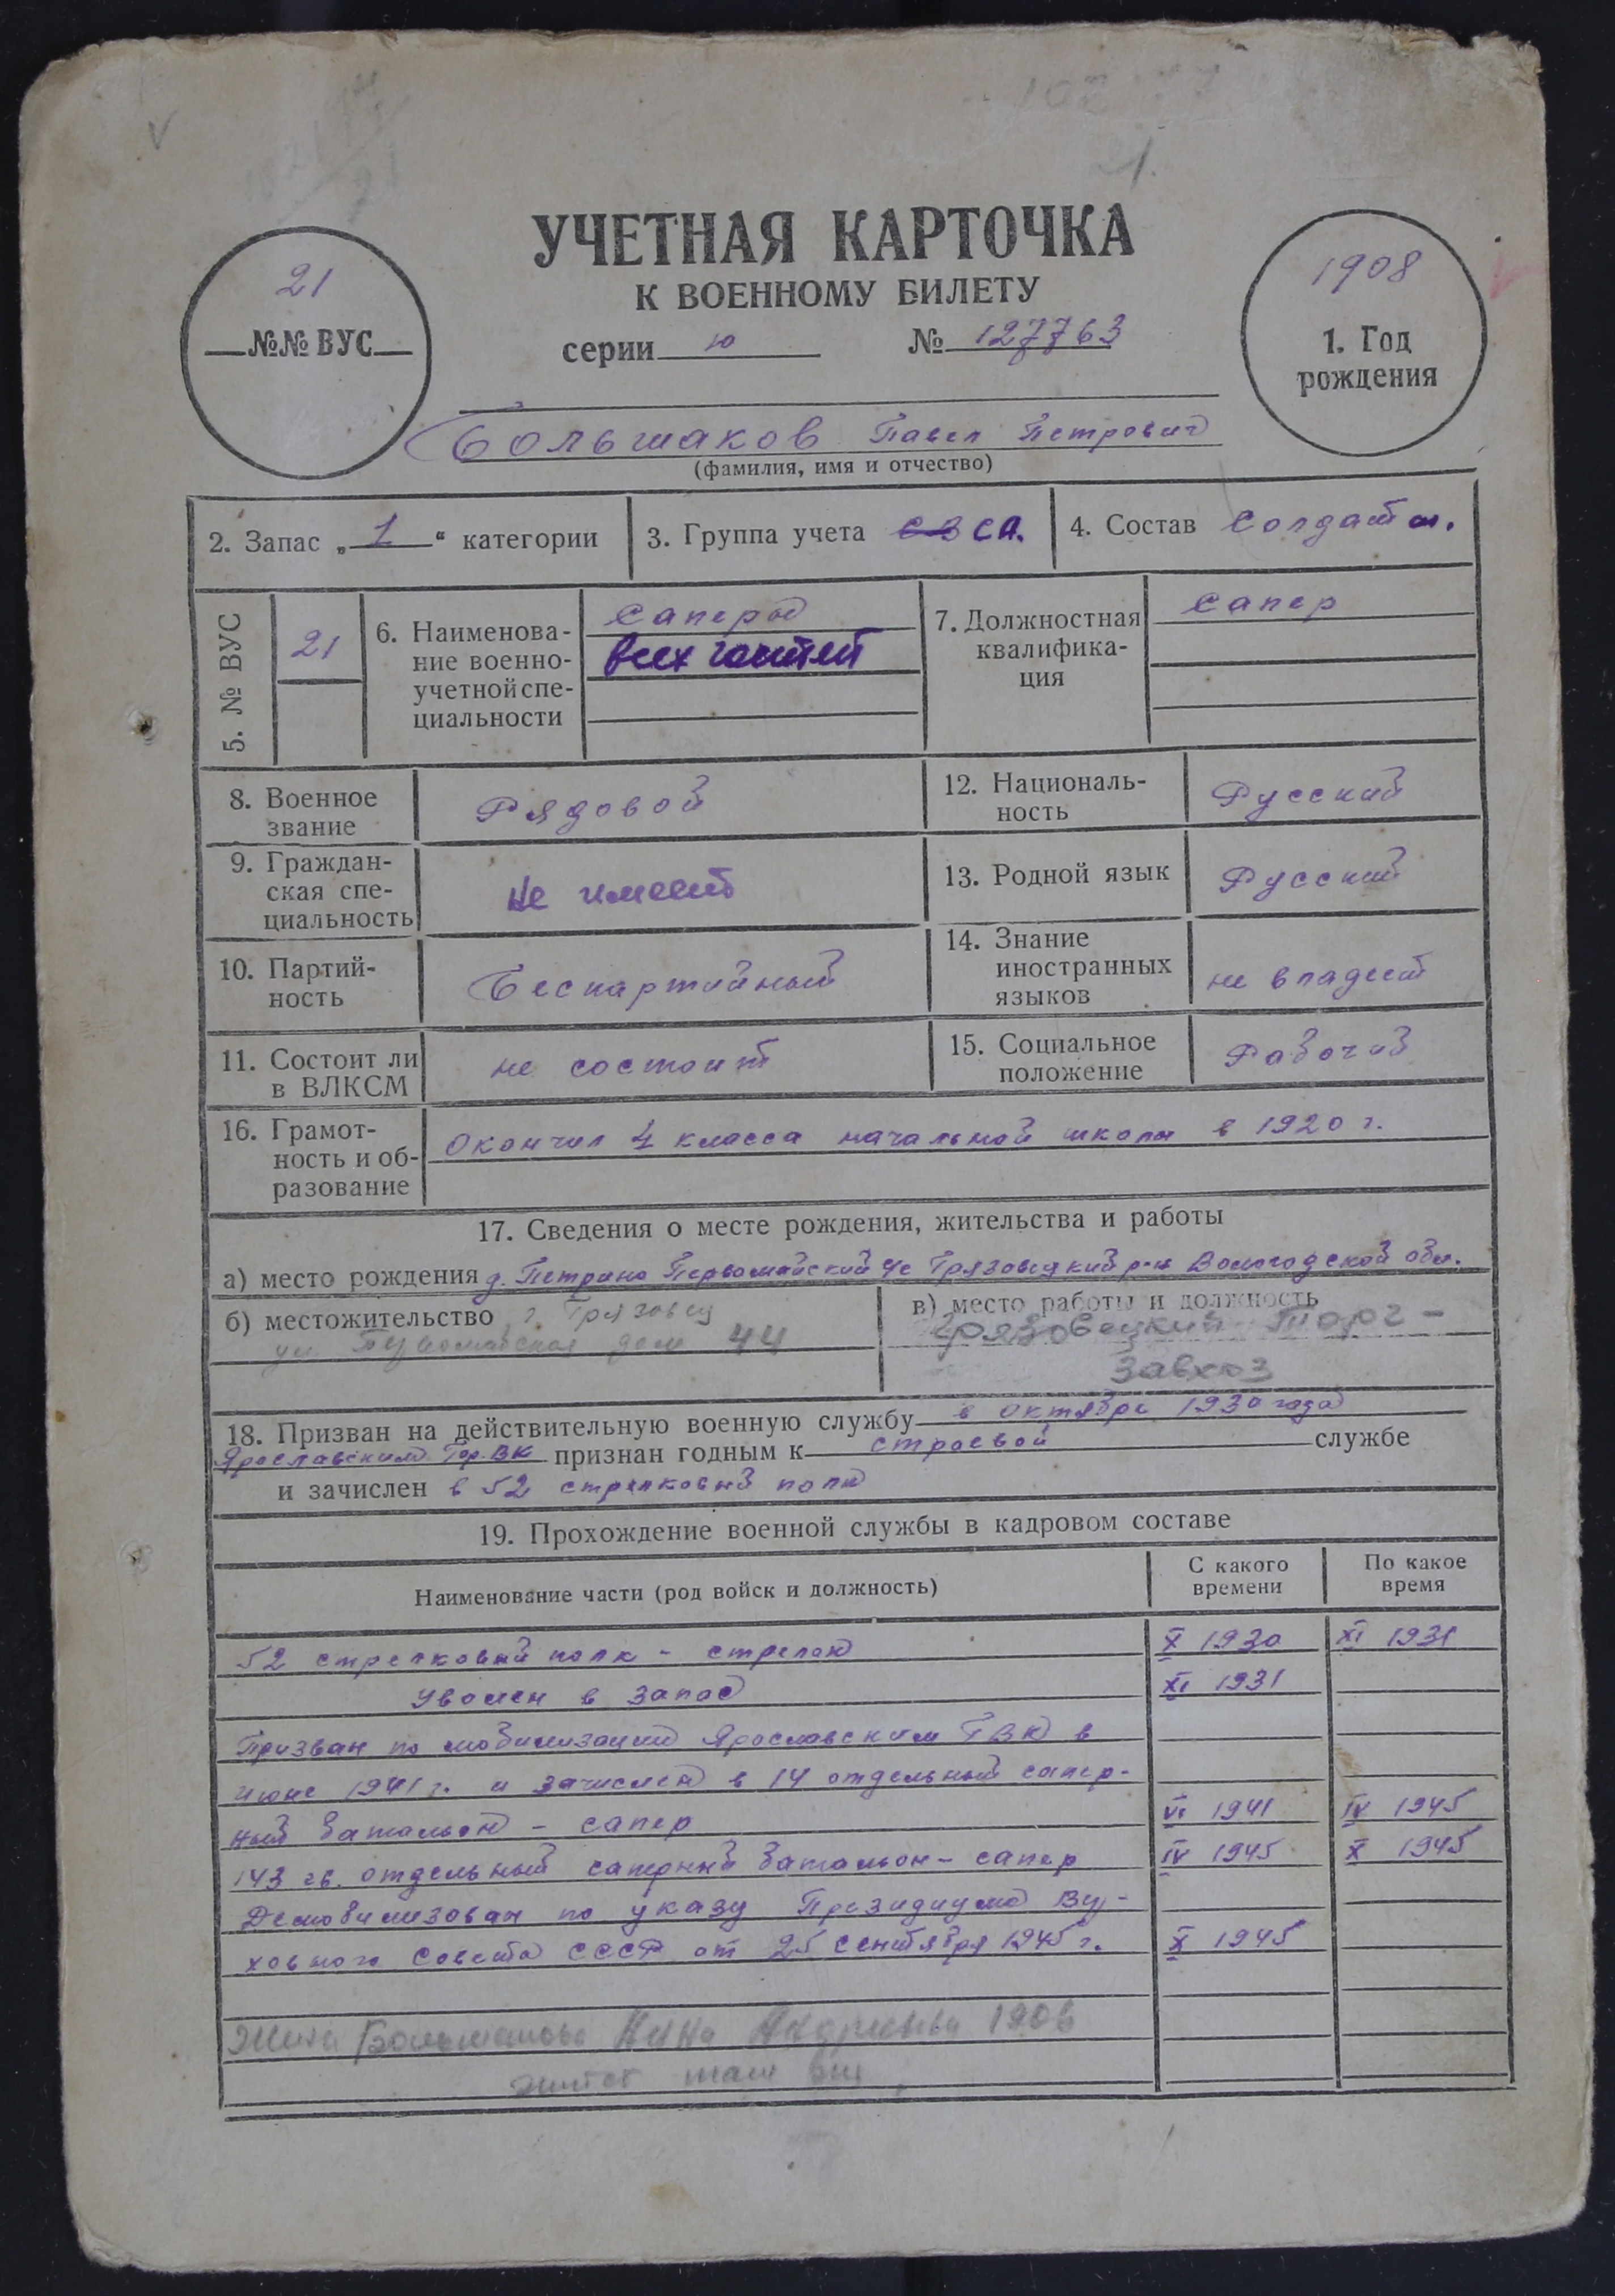 21.
УЧЕТНАЯ КАРТОЧКА
К ВОЕННОМУ БИЛЕТУ
серии ю № 127763
21
№№ ВУС
1908
1. Год
рождения
Большаков Павел Петрович
(фамилия, имя и отчество)
2. Запас „1“ категории
3. Группа учета СА.
4. Состав солдаты.
5. № ВУС
21
6. Наименова-
ние военно-
учетной спе-
циальности
Саперы
всех частей
7. Должностная
квалифика-
ция
Сапер
8. Военное
звание
Рядовой
12. Националь-
ность
Русский
9. Граждан-
ская спе-
циальность
Не имеет
13. Родной язык
Русский
10. Партий-
ность
Беспартийный
14. Знание
иностранных
языков
не владеет
11. Состоит ли
в ВЛКСМ
не состоит
15. Социальное
положение
Рабочий
16. Грамот-
ность и об-
разование
Окончил 4 класса начальной школы в 1920 г.
17. Сведения о месте рождения, жительства и работы
а) место рождения д. Петрино Первомайский с/с Грязовецкий р-н Вологодской обл.
б) местожительство г. Грязовец
ул. Первомайская дом 44
в) место работы и должность
Грязовецкий Торг -
завхоз
18. Призван на действительную военную службу в октябре 1930 года
Ярославским Гор.ВК признан годным к строевой службе
и зачислен в 52 стрелковый полк
19. Прохождение военной службы в кадровом составе
Наименование части (род войск и должность)
С какого
времени
По какое
время
52 стрелковый полк - стрелок X 1930 XI 1931
Уволен в запас XI 1931
Призван по мобилизации Ярославским ГВК в
июне 1941 г. и зачислен в 14 отдельный сапер-
ный батальон - сапер VI 1941 IV 1945
143 гв. отдельный саперный батальон - сапер IV 1945 X 1945
Демобилизован по указу Президиума Вер-
ховного Совета СССР от 25 сентября 1945 г. X 1945
Жена Большакова Нина Андреевна 1906
живет там же